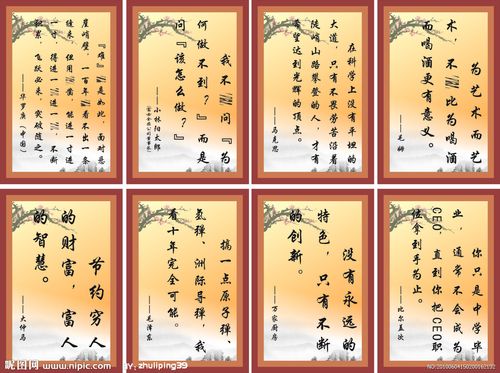 『难』是如此,面对悬
崖峭壁,一百年看不出一条
缝来,但用凿,能进一寸进
一寸,得进一,不断
积累,飞跃必来,突破随之。
——华罗庚(中国)
我不问『为
何做不到?』而是
问『该怎么做?』
——小林阳太郎
在科学上没有平坦的
大道,只有不畏劳苦沿着
陡峭山路攀登的人,才有
希望达到光辉的顶点。
——马克思
为艺术而艺
术,不比为喝酒
而喝酒更有意义。
——毛姆
节约穷人
的财富,富人
的智慧。
——大仲马
搞一点原子弹、
氢弹、洲际导弹,我
看有十年完全可能。
——毛泽东
没有永远的
特色,只有不断
的创新。
——万家厨房
你只是中学毕
业,通常不会成为
CEO,直到你把CEO职
位拿到手为止。
——比尔盖次
昵图网
www.nipic.com
zhuliping39